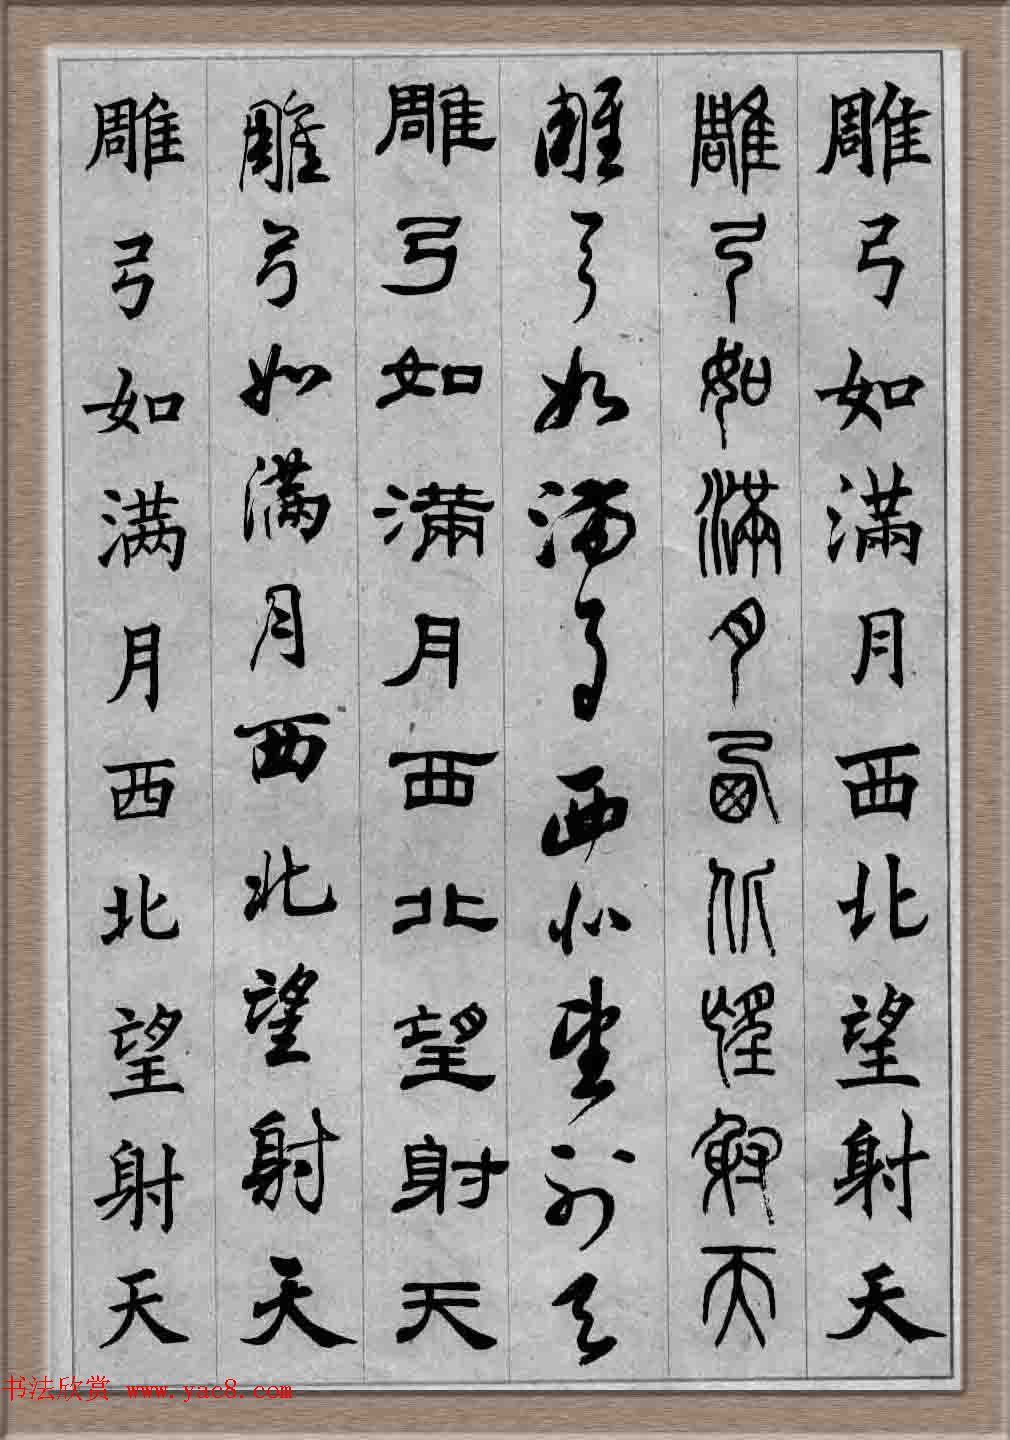 雕弓如滿月西北望射天
雕弓如滿月西北望射天
雕弓如滿月西北望射天
雕弓如滿月西北望射天
雕弓如滿月西北望射天
雕弓如满月西北望射天
书法欣赏 www.yac8.com